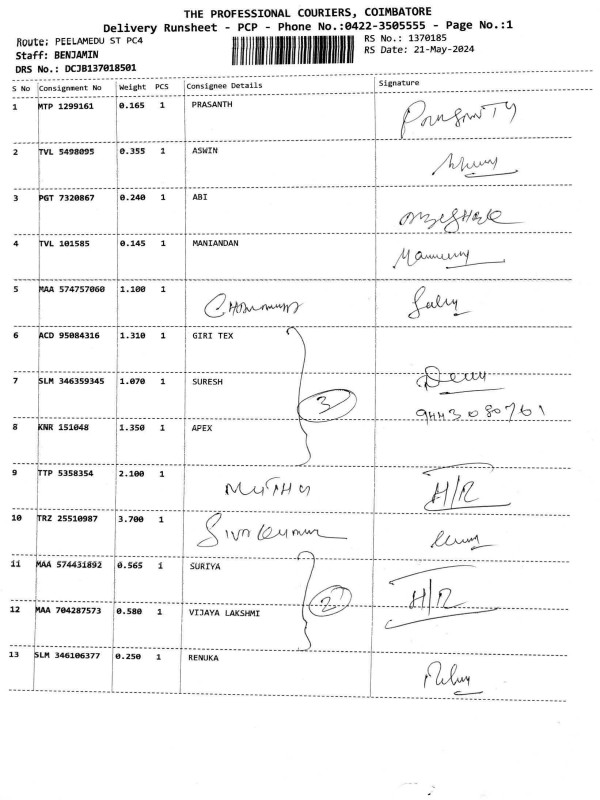 THE PROFESSIONAL COURIERS, COIMBATORE
Delivery Runsheet - PCP - Phone No.:0422-3505555 - Page No.:1
Route: PEELAMEDU ST PC4
RS No.: 1370185
Staff: BENJAMIN
RS Date: 21-May-2024
DRS No.: DCJB137018501
S No Consignment No Weight PCS Consignee Details Signature
1 MTP 1299161 0.165 1 PRASANTH
2 TVL 5498095 0.355 1 ASWIN
3 PGT 7320867 0.240 1 ABI
4 TVL 101585 0.145 1 MANIANDAN
5 MAA 574757060 1.100 1
6 ACD 95084316 1.310 1 GIRI TEX
7 SLM 346359345 1.070 1 SURESH 3
9443080761
8 KNR 151048 1.350 1 APEX
9 TTP 5358354 2.100 1 MUTHU H/R
10 TRZ 25510987 3.700 1 Sivakumar
11 MAA 574431892 0.565 1 SURIYA
12 MAA 704287573 0.580 1 VIJAYA LAKSHMI 2 H/R
13 SLM 346106377 0.250 1 RENUKA